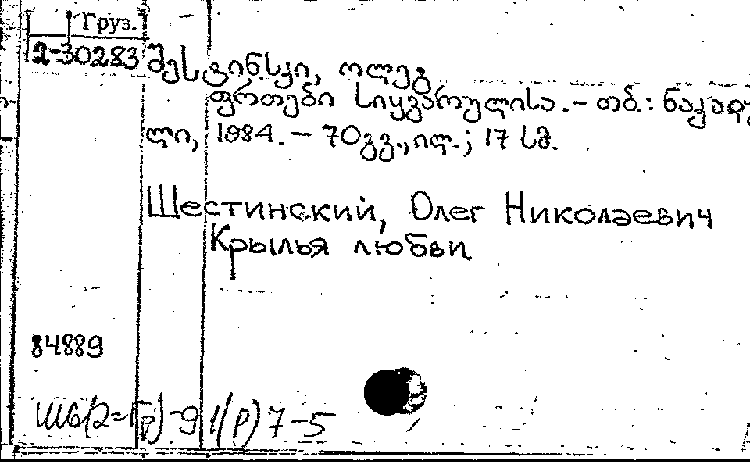 Груз.
2-30283
შესტინსკი, ოლეგ
ფრთები სიყვარულისა. – თბ.: ნაკადუ
ლი, 1984. – 70გვ., ილ.; 17 სმ.
Шестинский, Олег Николаевич
Крылья любви
84889
Ш6(2=Гр)-9 1(Р)7-5